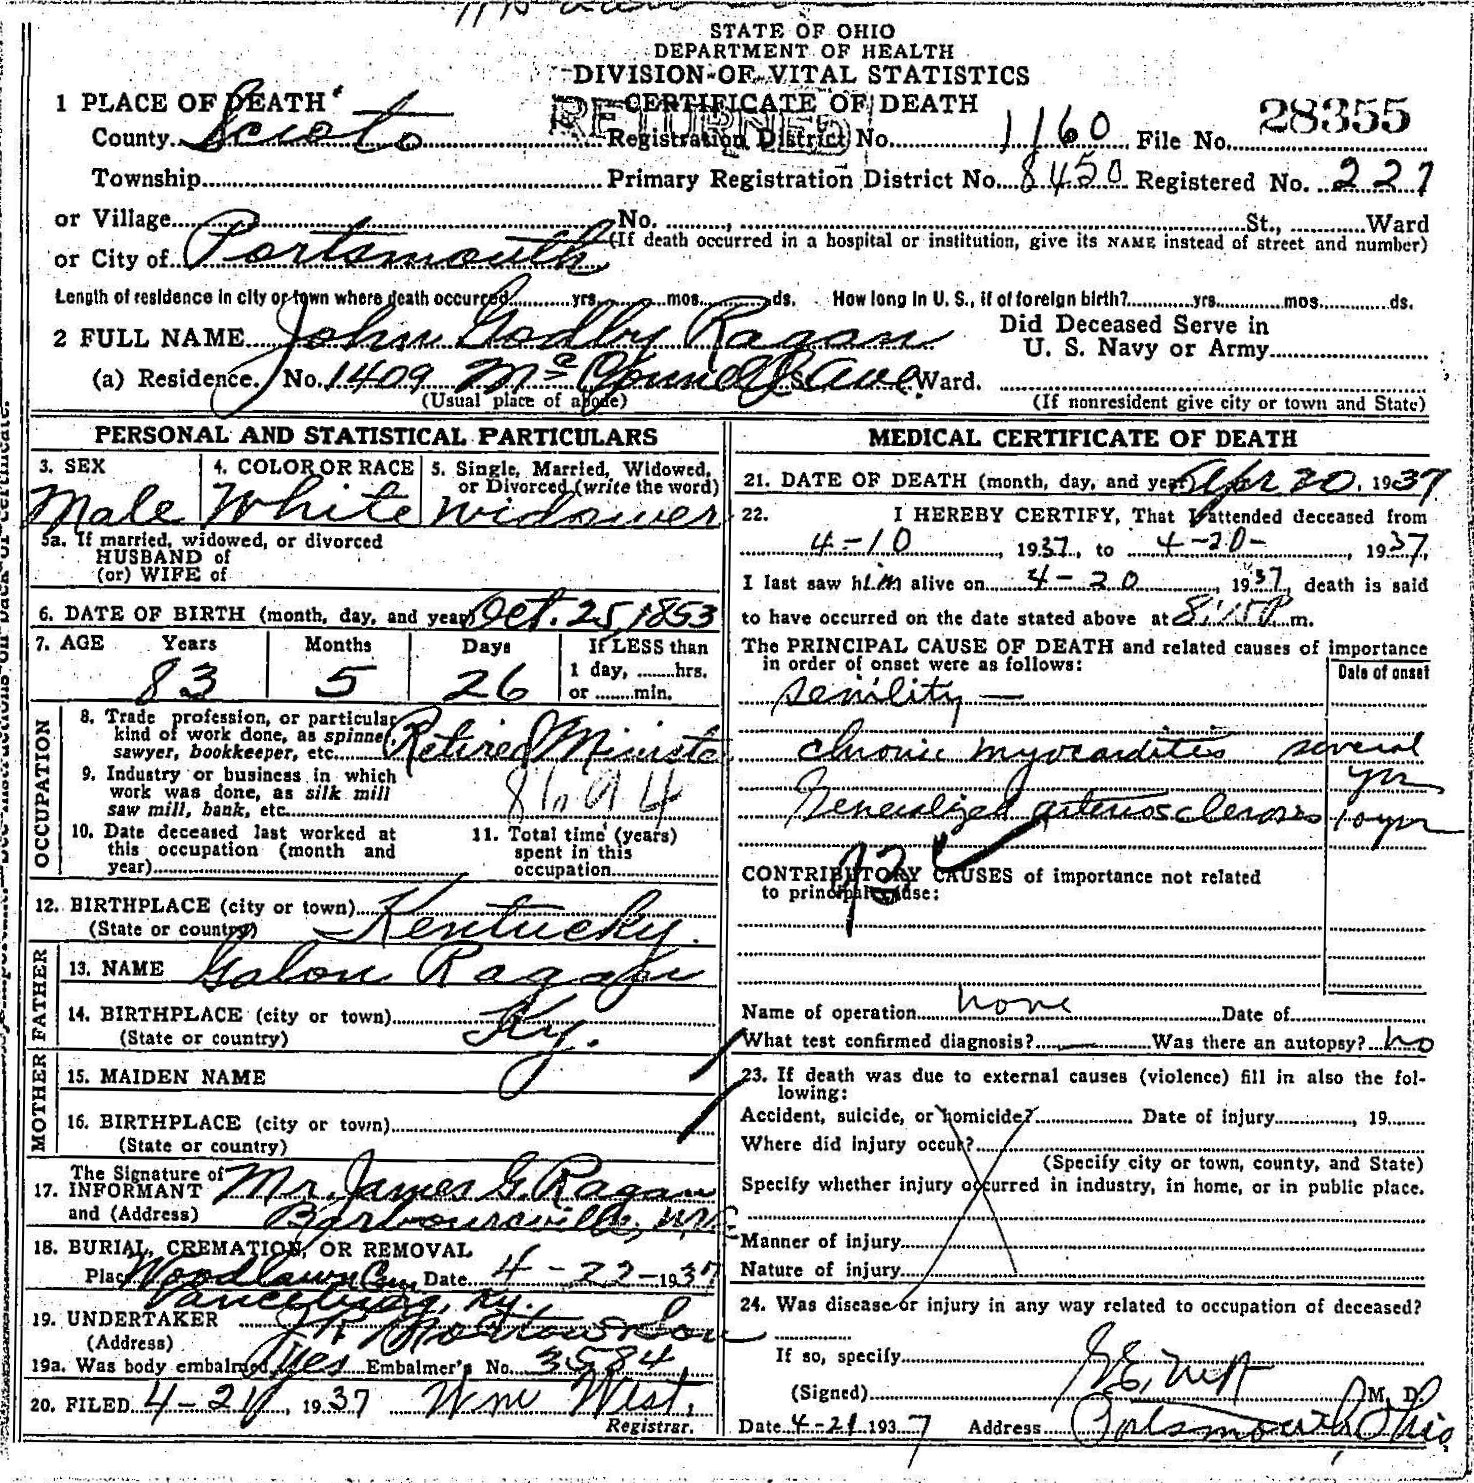 STATE OF OHIO
DEPARTMENT OF HEALTH
DIVISION OF VITAL STATISTICS
CERTIFICATE OF DEATH
RETURNED
1 PLACE OF DEATH
County Scioto Registration District No. 1160 File No. 28355
Township Primary Registration District No. 8450 Registered No. 227
or Village No. , St., Ward
(If death occurred in a hospital or institution, give its NAME instead of street and number)
or City of Portsmouth
Length of residence in city or town where death occurred yrs. mos. ds. How long in U. S., if of foreign birth? yrs. mos. ds.
2 FULL NAME John Godby Ragan Did Deceased Serve in
U. S. Navy or Army
(a) Residence. No. 1409 McConnell Ave. St., Ward.
(Usual place of abode) (If nonresident give city or town and State)
PERSONAL AND STATISTICAL PARTICULARS
3. SEX 4. COLOR OR RACE 5. Single, Married, Widowed, or Divorced (write the word)
Male White Widower
5a. If married, widowed, or divorced
HUSBAND of
(or) WIFE of
6. DATE OF BIRTH (month, day, and year) Oct. 25, 1853
7. AGE Years Months Days If LESS than
1 day, hrs.
or min.
83 5 26
OCCUPATION
8. Trade profession, or particular
kind of work done, as spinner,
sawyer, bookkeeper, etc. Retired Minister
9. Industry or business in which
work was done, as silk mill
saw mill, bank, etc.
10. Date deceased last worked at
this occupation (month and
year)
11. Total time (years)
spent in this
occupation
12. BIRTHPLACE (city or town)
(State or country) Kentucky.
FATHER
13. NAME Galon Ragan
14. BIRTHPLACE (city or town)
(State or country) Ky.
MOTHER
15. MAIDEN NAME
16. BIRTHPLACE (city or town)
(State or country)
17. The Signature of
INFORMANT Mr. James G. Ragan
and (Address) Barboursville, W.Va.
18. BURIAL, CREMATION, OR REMOVAL
Place Woodlawn Cem. Date 4-22-1937
Vanceburg, Ky.
19. UNDERTAKER
(Address)
19a. Was body embalmed Yes Embalmer's No. 3584
20. FILED 4-21, 1937 Wm West,
Registrar.
MEDICAL CERTIFICATE OF DEATH
21. DATE OF DEATH (month, day, and year) Apr 20, 1937
22. I HEREBY CERTIFY, That I attended deceased from
4-10, 1937, to 4-20-, 1937.
I last saw him alive on 4-20, 1937, death is said
to have occurred on the date stated above at 8:15P m.
The PRINCIPAL CAUSE OF DEATH and related causes of importance
in order of onset were as follows:
Date of onset
senility —
chronic myocarditis several
yrs
Generalized arteriosclerosis 10 yrs
CONTRIBUTORY CAUSES of importance not related
to principal cause:
Name of operation none Date of
What test confirmed diagnosis? Was there an autopsy? no
23. If death was due to external causes (violence) fill in also the fol-
lowing:
Accident, suicide, or homicide? Date of injury , 19
Where did injury occur?
(Specify city or town, county, and State)
Specify whether injury occurred in industry, in home, or in public place.
Manner of injury
Nature of injury
24. Was disease or injury in any way related to occupation of deceased?
If so, specify
(Signed) M. D.
Date 4-21 1937 Address Portsmouth, Ohio